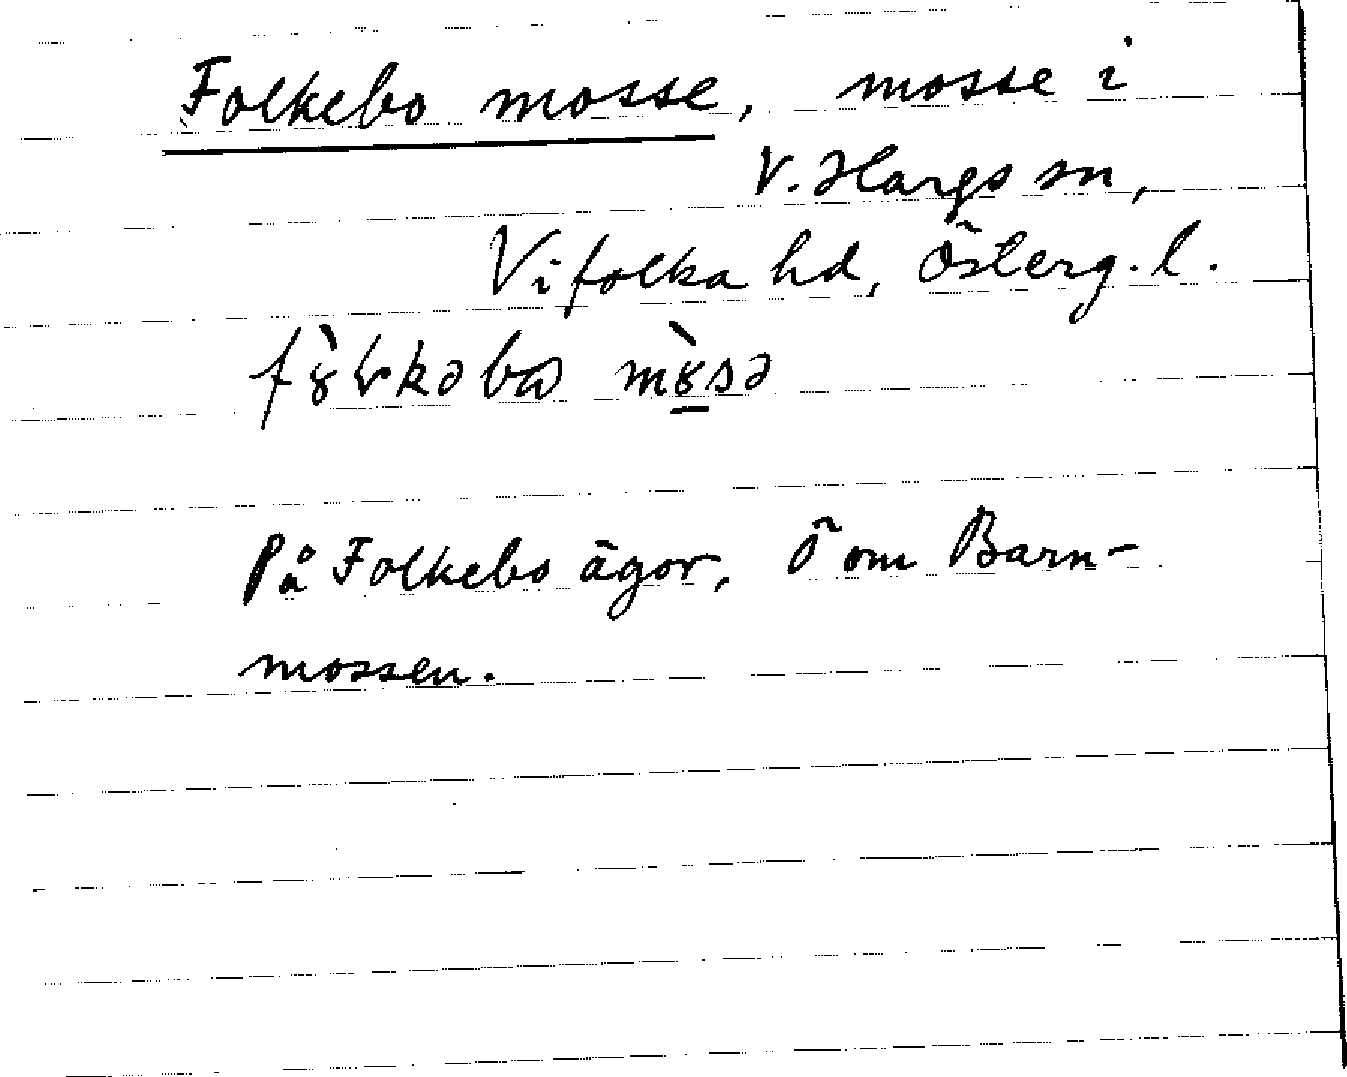 Folkebo mosse, mosse i
V. Hargs sn,
Vifolka hd, Österg. l.
fȣ̀ɽkəbɷ mȣ̠̀sə
På Folkebo ägor, Ö om Barn-
mossen.